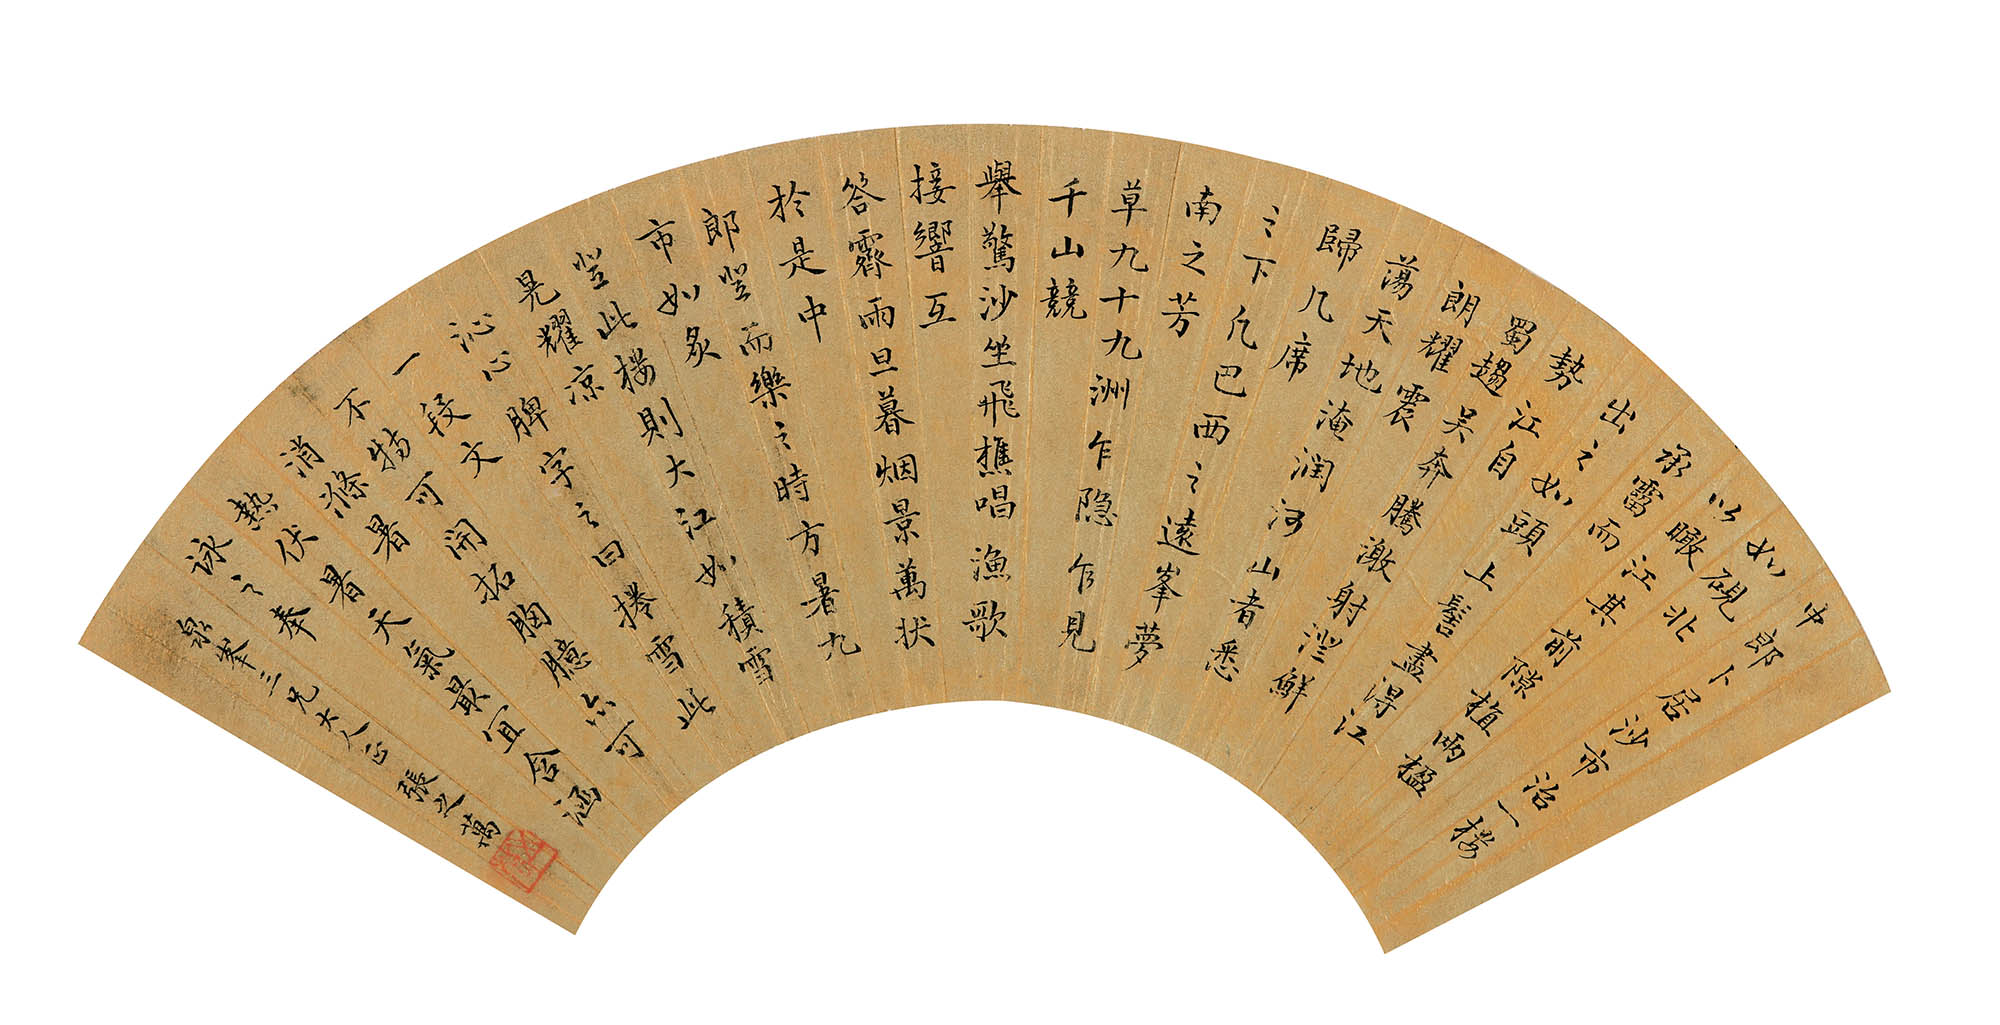 中郎卜居沙市治一楼
如硯北
以瞰江其前隙植兩楹
承霤而
出之如頭上髻盡得江
勢江自
蜀趨吳奔騰激射澄鮮
朗耀震
蕩天地淹潤河山者悉
歸几席
之下凡巴西之遠峯夢
南之芳
草九十九洲乍隐乍見
千山競
舉驚沙坐飛樵唱漁歌
接響互
答霽雨旦暮烟景萬状
於是中
郎登而樂之時方暑九
市如炙
登此楼則大江如積雪
晃耀涼
沁心脾字之曰捲雪此
一段文
不特可開拓胸臆亦可
消滌暑
熱伏暑天氣最宜含涵
詠之奉
泉峯三兄大人正 張之萬